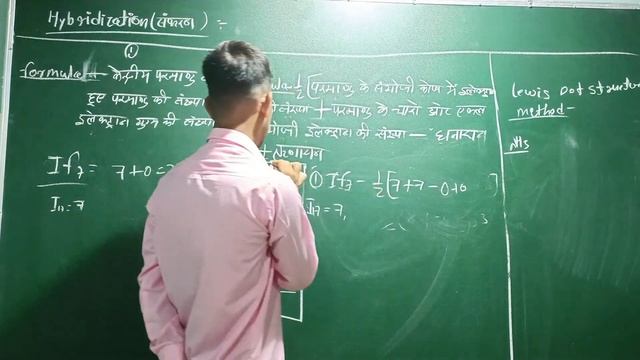 Hybridization (संकरण) :-
(1)
formula - केन्द्रीय परमाणु
1/2 [परमाणु के संयोजी कोश में इलेक्ट्रान
हुए परमाणु की संख्या
+ परमाणु के चारो ओर एकल
इलेक्ट्रान युग्म की संख्या
इलेक्ट्रान की संख्या - धनायन
+ ऋणायन
If₇ = 7+0=7
I₁₇=7
(1) If₇ - 1/2 [7+7-0+0 ]
I₁₇ = 7,
Lewis Dot Structure
method -
NH₃